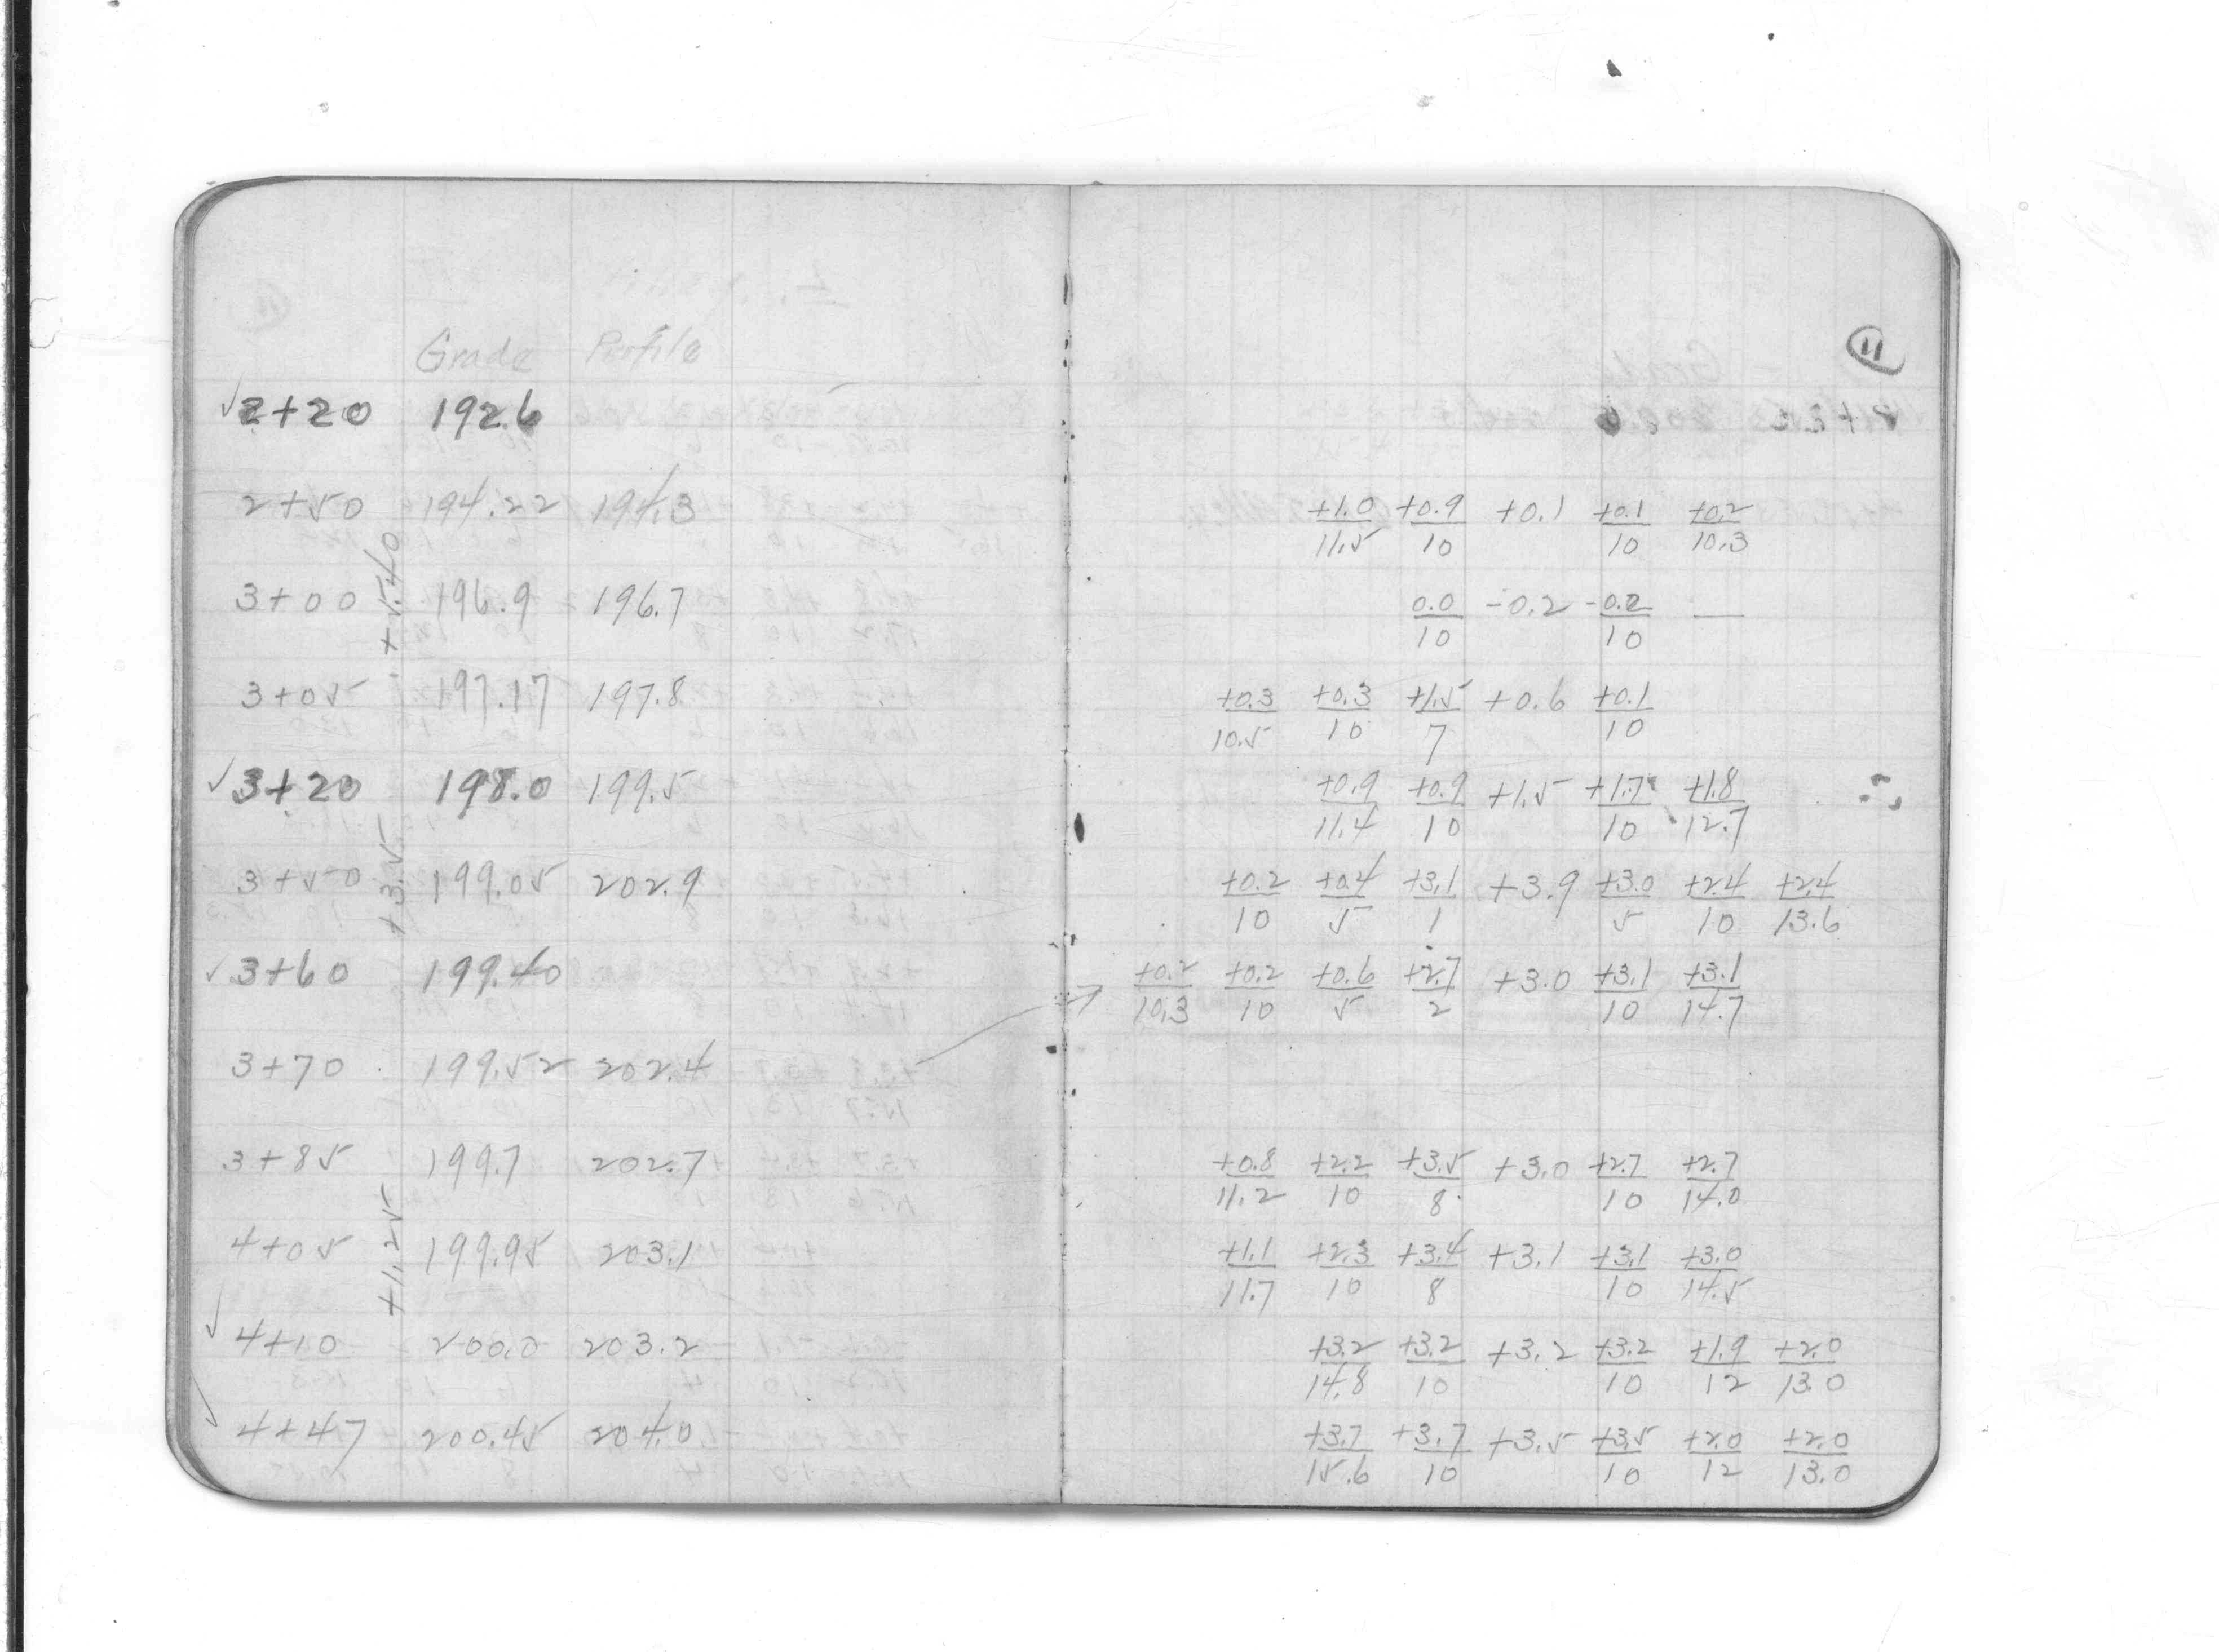 11
Grade Profile
√2+20 192.6
2+50 194.22 194.3 +1.0/11.5 +0.9/10 +0.1 +0.1/10 +0.2/10.3
+5.40
3+00 196.9 196.7 0.0/10 -0.2 -0.2/10 —
3+05 197.17 197.8 +0.3/10.5 +0.3/10 +1.5/7 +0.6 +0.1/10
√3+20 198.0 199.5 +0.9/11.4 +0.9/10 +1.5 +1.7/10 +1.8/12.7
+3.5
3+50 199.05 202.9 +0.2/10 +0.4/5 +3.1/1 +3.9 +3.0/5 +2.4/10 +2.4/13.6
√3+60 199.40 +0.2/10.3 +0.2/10 +0.6/5 +2.7/2 +3.0 +3.1/10 +3.1/14.7
3+70 199.52 202.4
3+85 199.7 202.7 +0.8/11.2 +2.2/10 +3.5/8 +3.0 +2.7/10 +2.7/14.0
+1.25
4+05 199.95 203.1 +1.1/11.7 +2.3/10 +3.4/8 +3.1 +3.1/10 +3.0/14.5
√4+10 200.0 203.2 +3.2/14.8 +3.2/10 +3.2 +3.2/10 +1.9/12 +2.0/13.0
√4+47 200.45 204.0 +3.7/15.6 +3.7/10 +3.5 +3.5/10 +2.0/12 +2.0/13.0